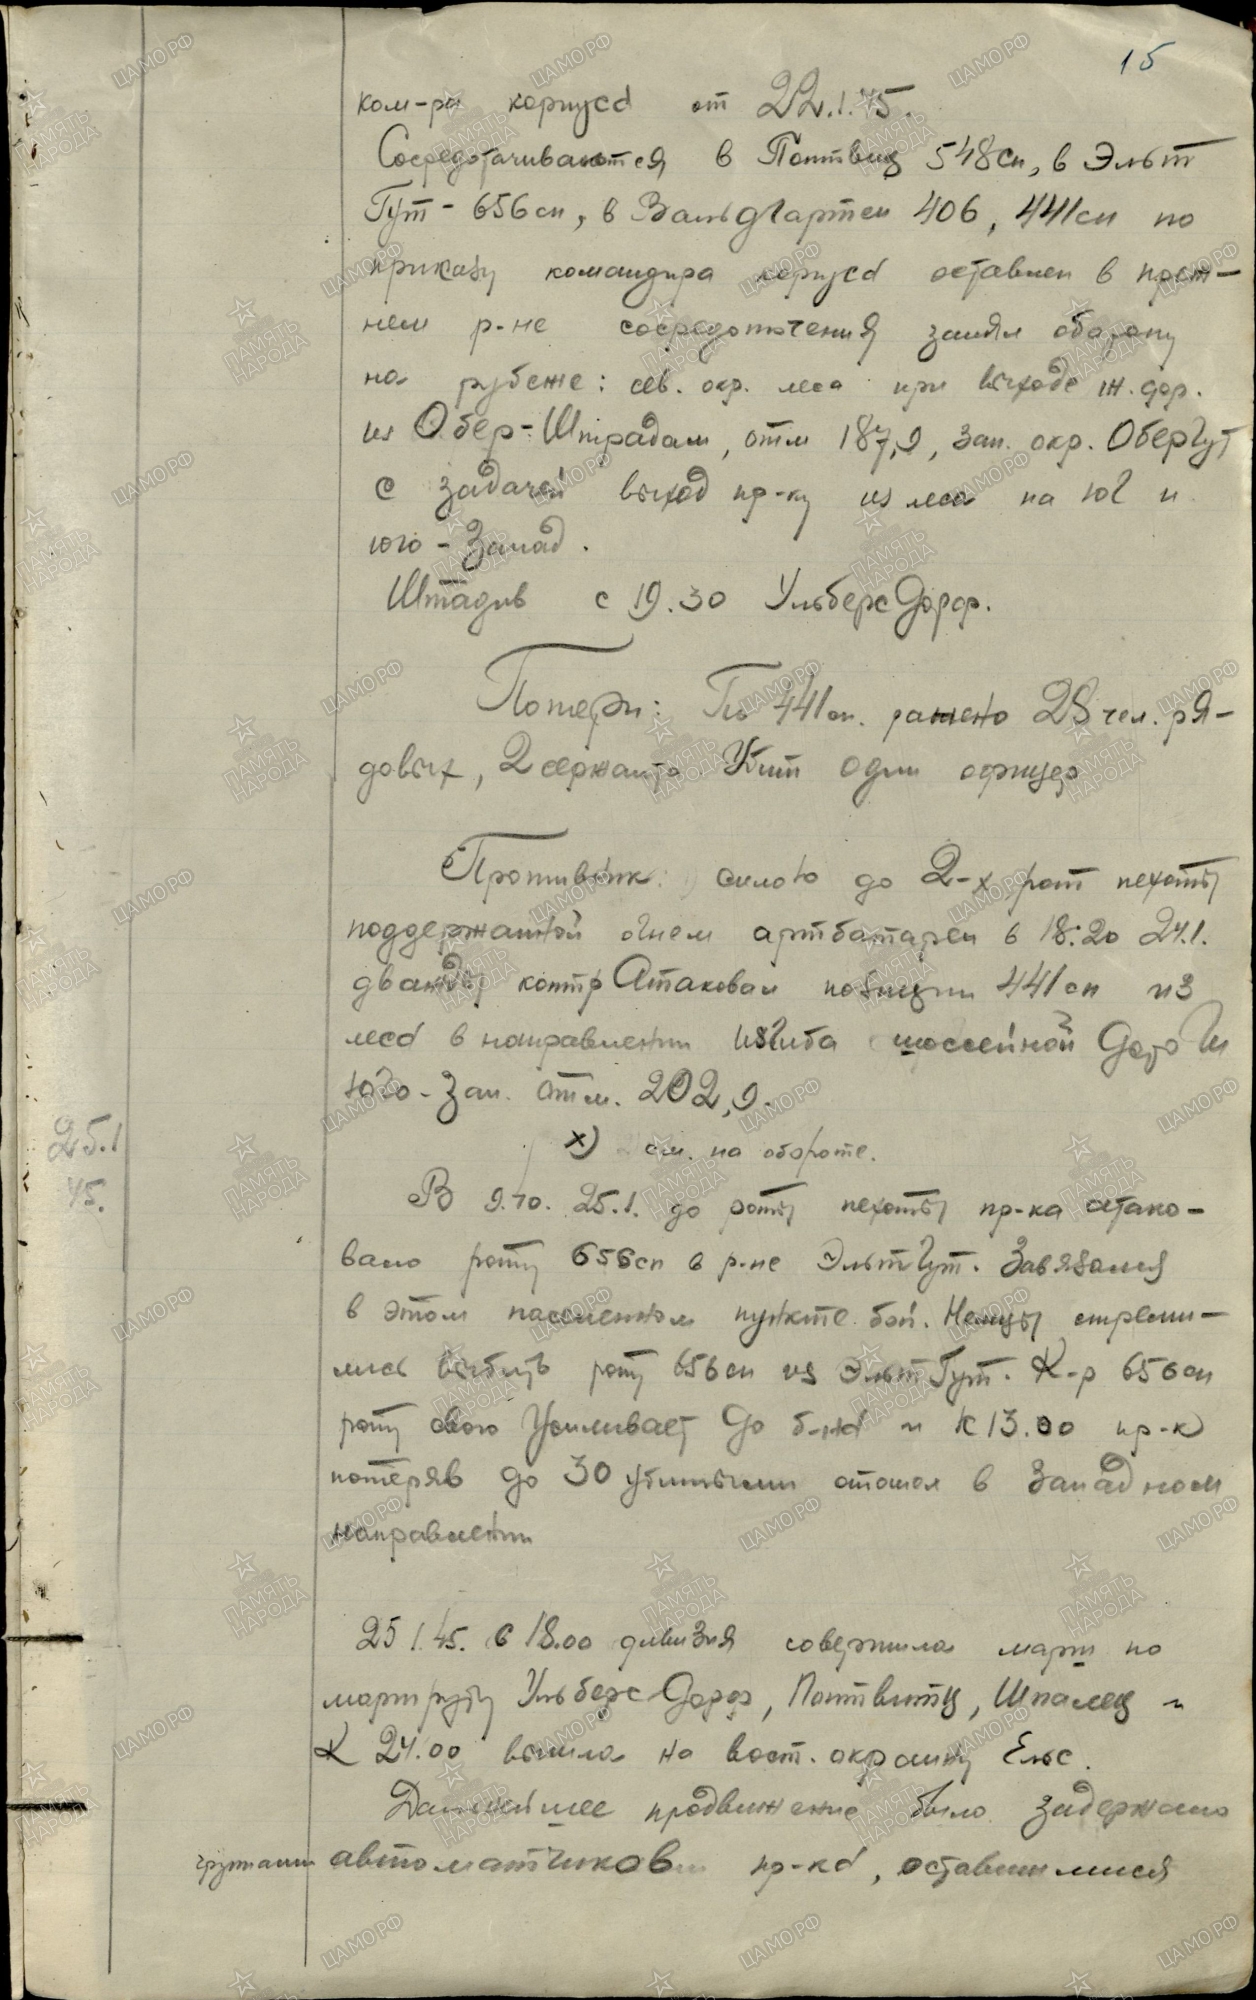 15
ком-ра корпуса от 22.1.45.
Сосредотачиваются в Поттвиц 548сп, в Эльт
Гут - 656сп, в Вальдгартен 406, 441сп по
приказу командира корпуса оставлен в преж-
нем р-не сосредоточения занял оборону
на рубеже: сев. окр. леса при выходе ж. дор.
из Обер-Шпрадам, отм 187,9, зап. окр. Обергут
с задачей выход пр-ку из леса на юг и
юго-Запад.
Штадив с 19.30 Ульберсдорф.
Потери: По 441сп. ранено 28 чел. ря-
довых, 2 сержанта Убит один офицер
Противник: силою до 2-х рот пехоты
поддержанной огнем артбатареи в 18:20 24.1.
дважды контратаковал позиции 441сп из
леса в направлении изгиба шоссейной дороги
юго-зап. отм. 202,9.
х) см. на обороте.
25.1
45.
В 9.10. 25.1. до роты пехоты пр-ка атако-
вало роту 656сп в р-не Эльтгут. Завязался
в этом населенном пункте бой. Немцы стреми-
лись выбить роту 656сп из ЭльтГут. К-р 656сп
роту свою усиливает до б-на и к 13.00 пр-к
потеряв до 30 убитыми отошел в Западном
направлении
25 1.45. в 18.00 дивизия совершила марш по
маршруту Ульберсдорф, Поттвитц, Шпалец и
к 24.00 вышла на вост. окраину Ельс.
Дальнейшее продвижение было задержано
группами автоматчиков пр-ка, оставшимися
ЦАМО.РФ
ПАМЯТЬ
НАРОДА